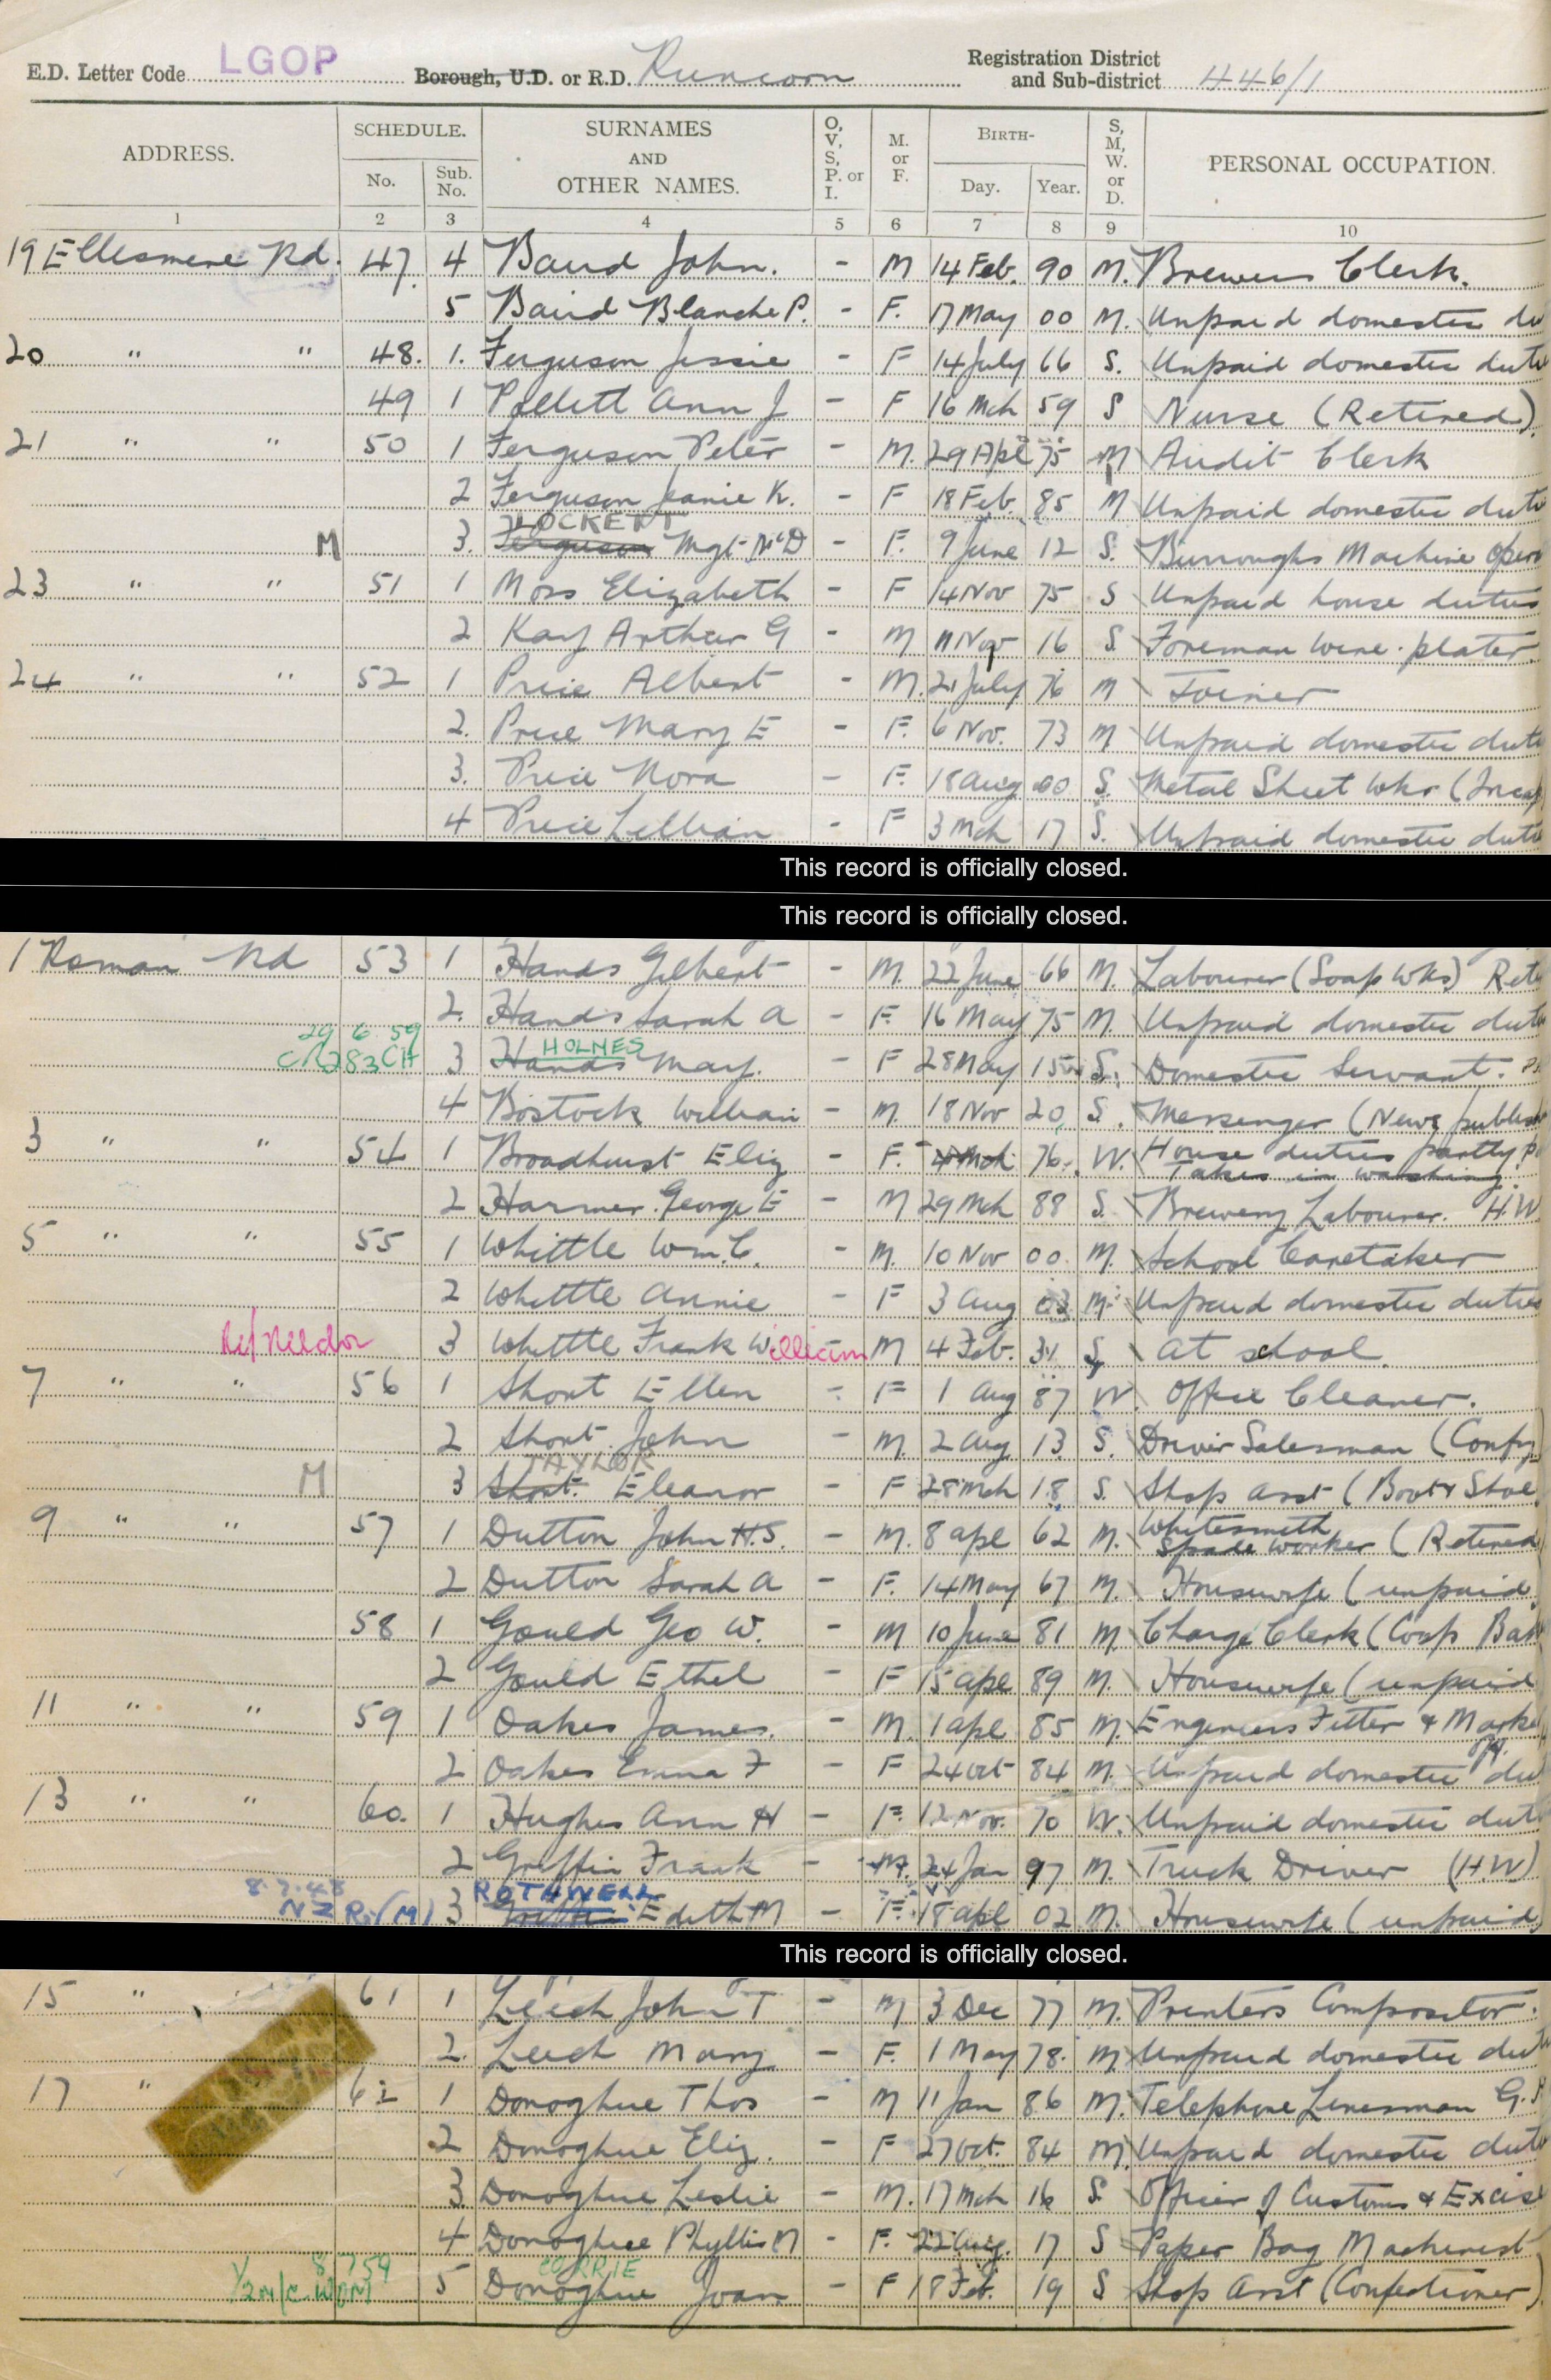 E.D. Letter Code LGOP Borough, U.D. or R.D. Runcorn Registration District and Sub-district 446/1
ADDRESS. SCHEDULE. No. Sub. No. SURNAMES AND OTHER NAMES. O, V, S, P. or I. M. or F. BIRTH- Day. Year. S, M, W. or D. PERSONAL OCCUPATION.
1 2 3 4 5 6 7 8 9 10
19 Ellesmere Rd. 47. 4 Baird John. - M 14 Feb. 90 M. Brewers Clerk.
5 Baird Blanche P. - F. 17 May 00 M. Unpaid domestic du
20 " " 48. 1. Ferguson Jessie - F 14 July 66 S. Unpaid domestic dute
49 1 Pellett Ann J - F 16 Mch 59 S Nurse (Retired)
21 " " 50 1 Ferguson Peter - M. 29 Apl 75 M Audit Clerk
2 Ferguson Jeanie K. - F 18 Feb. 85 M Unpaid domestic duti
LOCKETT
M 3. Ferguson Mgt McD - F. 9 June 12 S. Burroughs Machine Oper
23 " " 51 1 Moss Elizabeth - F 14 Nov 75 S Unpaid house duties
2 Kay Arthur G - M 11 Nov 16 S. Foreman wire plater
24 " " 52 1 Price Albert - M. 21 July 76 M Joiner
2. Price Mary E - F. 6 Nov. 73 M Unpaid domestic duti
3. Price Nora - F. 18 Aug 00 S. Metal Sheet Wkr (Incap
4 Price Lillian - F 3 Mch 17 S. Unpaid domestic duti
This record is officially closed.
This record is officially closed.
1 Roman Rd 53 1 Hands Gilbert - M. 22 June 66 M. Labourer (Soap Wks) Reti
2. Hands Sarah A - F. 16 May 75 M. Unpaid domestic duti
29 6 59 HOLMES
CR283CH 3 Hands May. - F 28 May 15 S. Domestic Servant.
4 Bostock William - M. 18 Nov 20 S. Messenger (News publish
3 " " 54 1 Broadhurst Eliz - F. 4 Mch 76. W. House duties partly p
Takes in washing
2 Harmer George E - M 29 Mch 88 S. Brewery Labourer. H.W
5 " " 55 1 Whittle Wm. C. - M. 10 Nov 00. M. School Caretaker
2 Whittle Annie - F 3 Aug 03 M. Unpaid domestic duties
3 Whittle Frank William M 4 Feb. 31 S. at school.
7 " " 56 1 Short Ellen - F 1 Aug 87 W. Office Cleaner.
2 Short John - M. 2 Aug 13. S. Driver Salesman (Confy)
TAYLOR
M 3 Short Eleanor - F 28 Mch 18 S. Shop Asst (Boot & Shoe
9 " " 57 1 Dutton John H.S. - M. 8 Apl 62 M. Whitesmith
Spade worker (Retired
2 Dutton Sarah A - F. 14 May 67 M. Housewife (unpaid
58 1 Gould Geo W. - M 10 June 81 M. Charge Clerk (Corp
2 Gould Ethel - F 15 Apl 89 M. Housewife (unpaid
11 " " 59 1 Oakes James. - M. 1 Apl 85 M. Engineers Fitter & Marker
off.
2 Oakes Emma F - F 24 Oct 84 M. Unpaid domestic du
13 " " 60. 1 Hughes Ann H - F. 12 Nov. 70 W. Unpaid domestic dut
2 Griffin Frank - M. 24 Jan 97 M. Truck Driver (H.W)
8.7.48 ROTHWELL
NZ R (M) 3 Griffin Edith M - F. 18 Apl 02 M. Housewife (unpaid)
This record is officially closed.
15 " " 61 1 Leech John T - M 3 Dec 77 M. Printers Compositor.
2. Leech Mary - F. 1 May 78. M Unpaid domestic dut
17 " 62 1 Donoghue Thos - M 11 Jan 86 M. Telephone Linesman G.P
2 Donoghue Eliz. - F 27 Oct. 84 M. Unpaid domestic duti
3 Donoghue Leslie - M. 17 Mch 16 S. Officer of Customs & Excise
4 Donoghue Phyllis M - F. 22 Aug. 17 S Paper Bag Machinist
8 7 59 CORRIE
5 Donoghue Joan - F 18 Feb. 19 S Shop Asst (Confectioner)